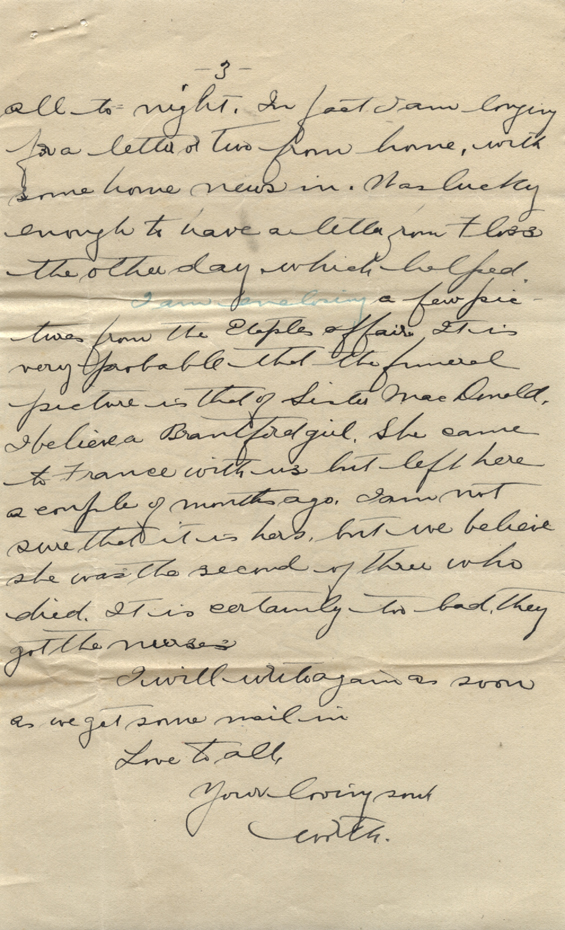 -3-
all to-night. In fact I am longing
for a letter or two from home, with
some home news in. Was lucky
enough to have a letter from Floss
the other day, which helped.
I am enclosing a few pic-
tures from the Etaples affair. It is
very probable that the funeral
picture is that of Sister MacDonald,
I believe a Brantford girl. She came
to France with us but left here
a couple of months ago. I am not
sure that it is hers, but we believe
she was the second of three who
died. It is certainly too bad, they
got the nurses
I will write again as soon
as we get some mail in
Love to all,
Your loving son